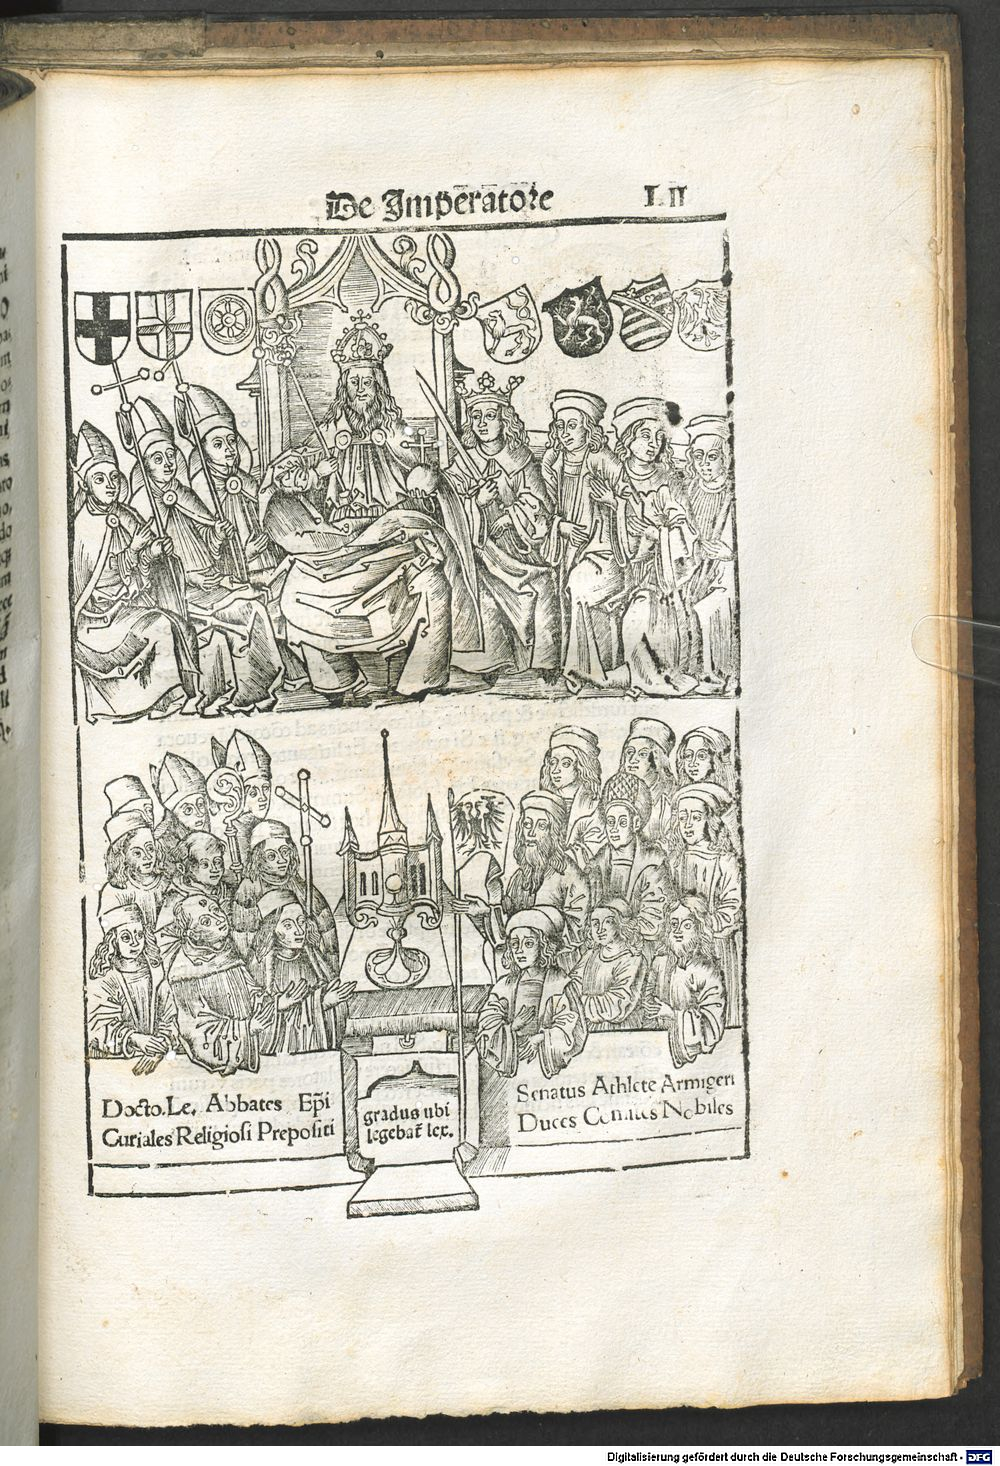 De Imp̄er̄ator̄e LII
Docto. Le. Abbates Ep̄i
Curiales Religiosi Prepositi
gradus ubi
legebat̄ lex.
Senatus Athlete Armigeri
Duces Comites Nobiles
Digitalisierung gefördert durch die Deutsche Forschungsgemeinschaft - DFG